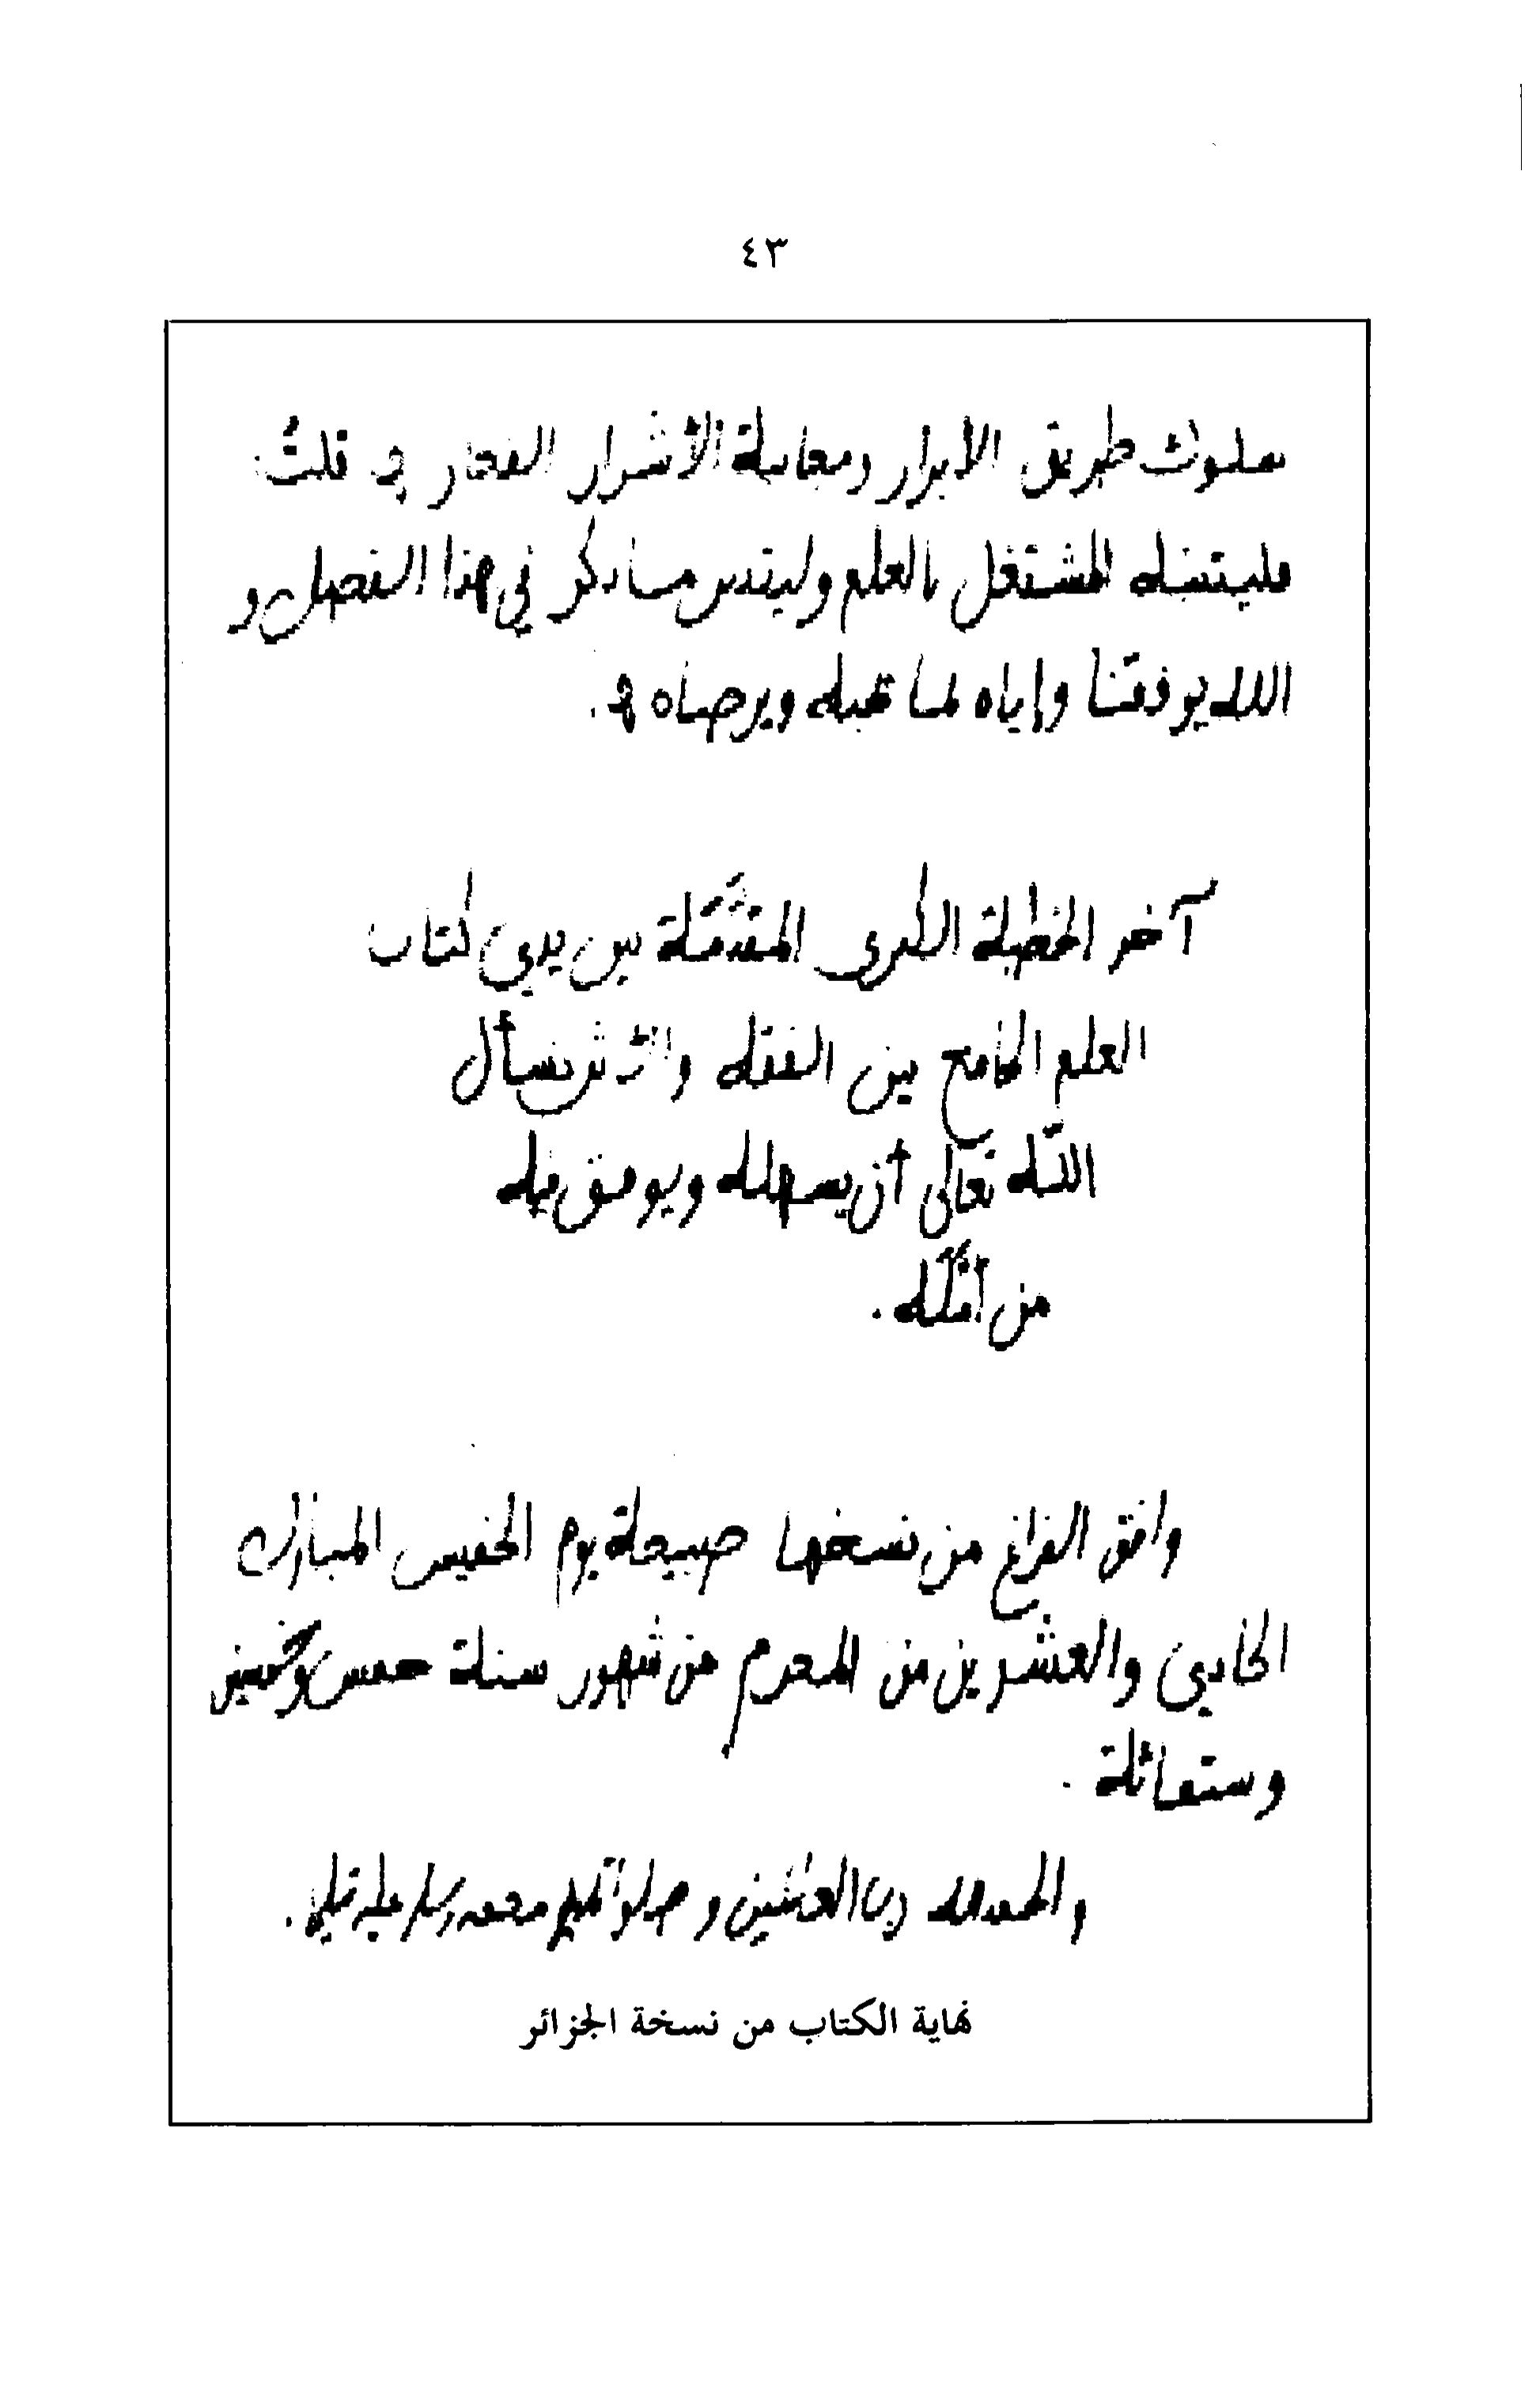 ٤٣
سلوك طريق الأبرار ومجانبة الأشرار الفجار ۞ قلتُ
فليتنبه المشتغل بالعلم وليتدبر ما ذكر في هذا الفصل و
الله يوفقنا وإياه لما يحبه ويرضاه ۞.
آخر الخطبة الكبرى المقدّمة بين يدي كتاب
العلم الجامع بين الفقه والأثر نسأل
الله تعالى أن يسهله ويوفق فيه
من
وافق الفراغ من نسخها صبيحة يوم الخميس المبارك
الحادي والعشرين من المحرم من شهور سنة خمس وخمسين
وستمائة .
والحمد لله رب العالمين وصلواته محمد وسلم عليه
نهاية الكتاب من نسخة الجزائر